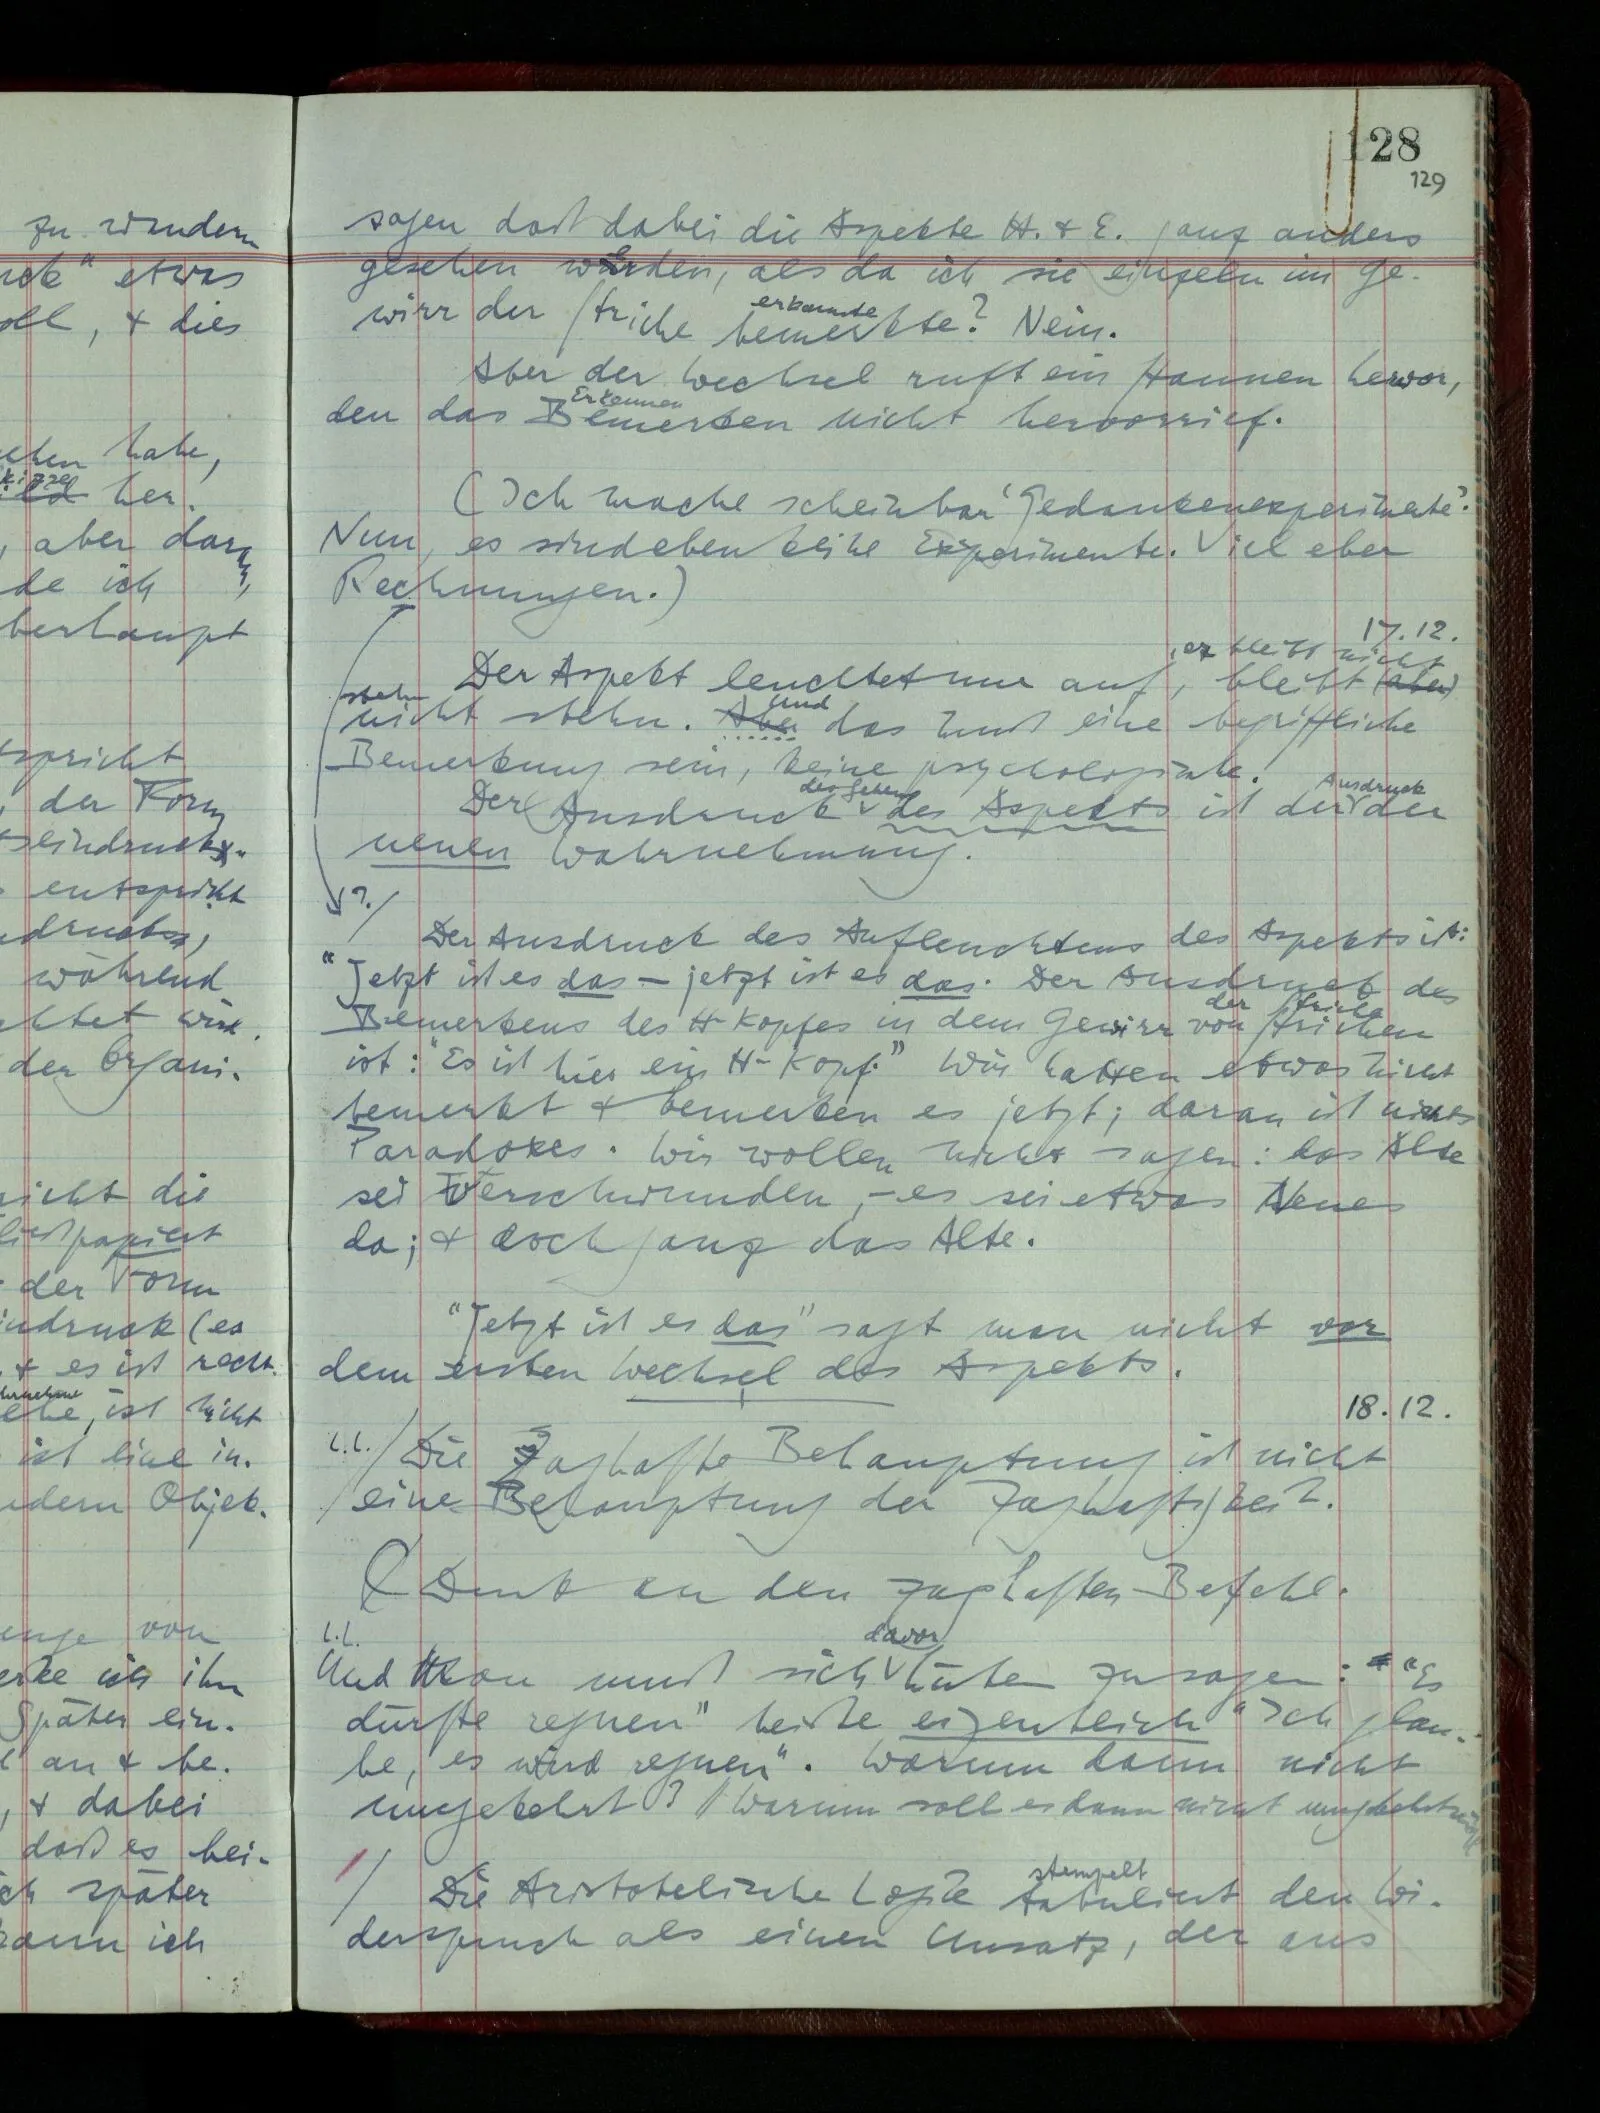 zu wundern
ck" etwas
oll, & dies
ehen habe,
kizze
her.
, aber daran,
de ich
berhaupt
tspricht
, der Form
seindrucks.
entspricht
drucks,
während
chtet wird.
der Organi-
nicht die
ließpapiert
der Form
indruck (es
& es ist recht.
ehe, ist nicht
ist eine in-
ndern Objek-
enge von
erke ich ihn
Später ein-
l an & be-
, & dabei
daß es bei-
ch später
kann ich
128
129
sagen daß dabei die Aspekte H. & E. ganz anders
gesehen würden, als da ich sie einzeln im Ge-
erkannte
wirr der Striche bemerkte? Nein.
Aber der Wechsel ruft ein Staunen hervor,
Erkennen
den das Bemerken nicht hervorrief.
(Ich mache scheinbar 'Gedankenexperimente'.
Nun, es sind eben keine Experimente. Viel eher
Rechnungen.)
17.12.
, er bleibt nicht
Der Aspekt leuchtet nur auf, bleibt (aber)
stehn
Und
nicht stehn. Aber das muß eine begriffliche
Bemerkung sein, keine psychologische.
des Sehens Ausdruck
Der Ausdruck des Aspekts ist der der
neuen Wahrnehmung.
?/
Der Ausdruck des Aufleuchtens des Aspekts ist:
"Jetzt ist es das – jetzt ist es das. Der Ausdruck des
der Striche
Bemerkens des H-Kopfes in dem Gewirr von Strichen
ist: "Es ist hier ein H-Kopf." Wir hatten etwas nicht
bemerkt & bemerken es jetzt; daran ist nichts
Paradoxes. Wir wollen nicht sagen: das Alte
sei verschwunden, – es sei etwas Neues
da; & doch ganz das Alte.
"Jetzt ist es das" sagt man nicht vor
dem ersten Wechsel des Aspekts.
18.12.
L.L./ Die zaghafte Behauptung ist nicht
/ eine Behauptung der Zaghaftigkeit.
(Denk an den zaghaften Befehl.
L.L.
davor
Und Man muß sich hüten zu sagen: "Es
dürfte regnen" heiße eigentlich "Ich glau-
be, es wird regnen". Warum dann nicht
umgekehrt? // Warum soll es dann nicht umgekehrt sein
/ Die Aristotelische Logik
stempelt
den Wi-
derspruch als einen Unsatz, der aus